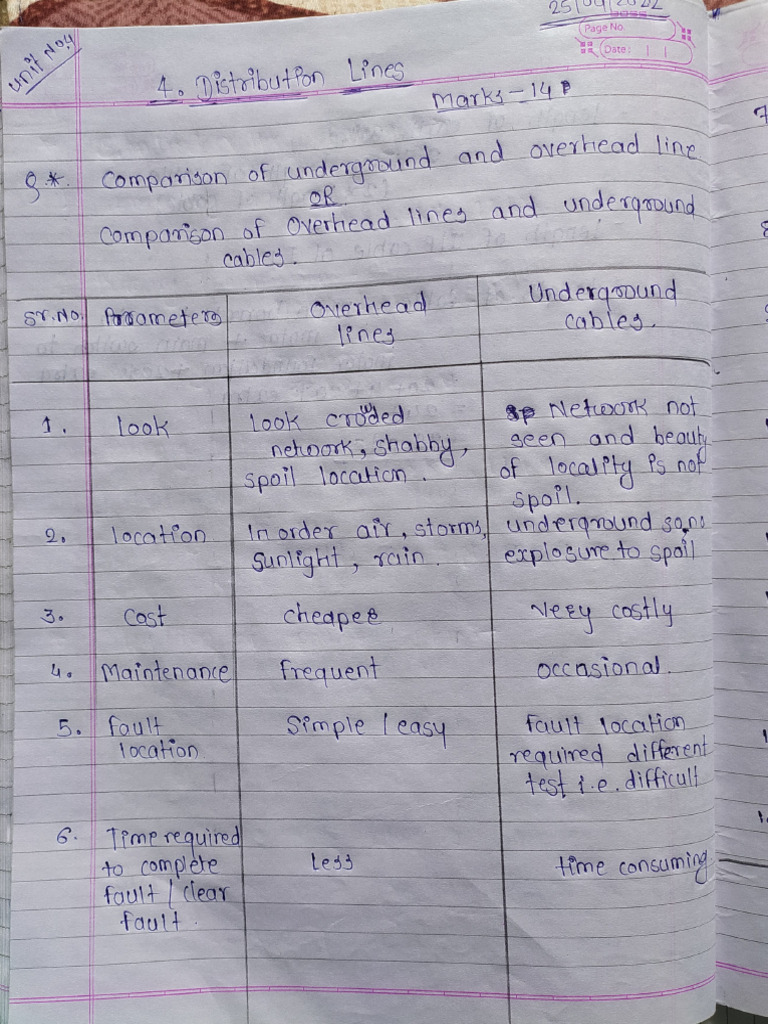 25/04/2022
Page No.
Date:
Unit No.4
4. Distribution Lines
Marks - 14
Q.*. Comparison of underground and overhead line
OR
Comparison of Overhead lines and underground
cables.
Sr.No. Parameters Overhead lines Underground cables.
1. Look Look crowded network, shabby, spoil location. Network not seen and beauty of locality is not spoil.
2. location In order air, storms, sunlight, rain. underground so no explosure to spoil
3. Cost cheaper very costly
4. Maintenance frequent occasional.
5. fault location Simple / easy fault location required different test i.e. difficult
6. Time required to complete fault / clear fault. Less time consuming